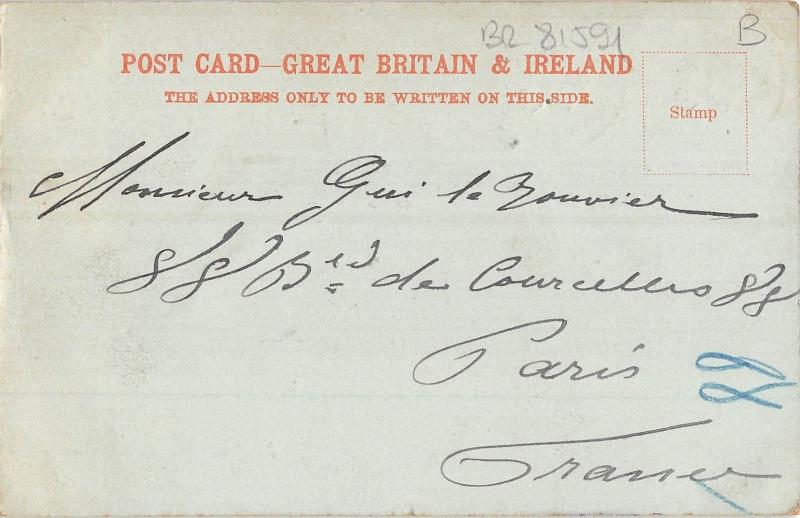 BR 81591
B
POST CARD—GREAT BRITAIN & IRELAND
THE ADDRESS ONLY TO BE WRITTEN ON THIS SIDE.
Stamp
Monsieur Gui le Bouvier
88 Bld de Courcelles 88
Paris
88
France